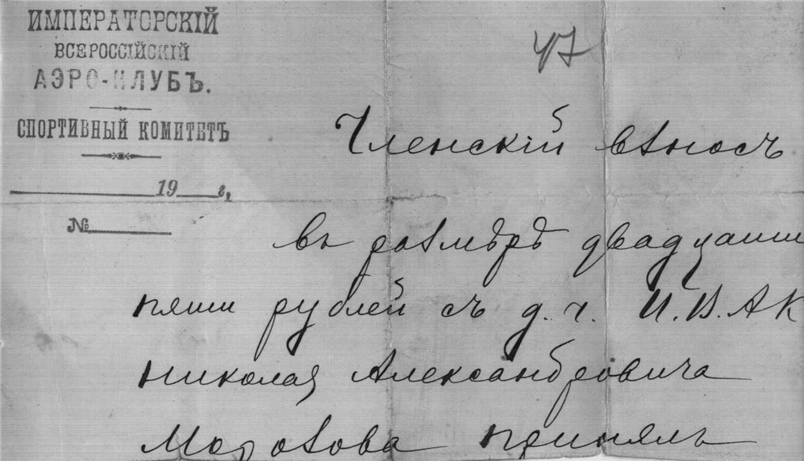 ИМПЕРАТОРСКІЙ
ВСЕРОССІЙСКІЙ
АЭРО-КЛУБЪ.
СПОРТИВНЫЙ КОМИТЕТЪ
19 г,
№
47
Членскій взносъ
въ размѣрѣ двадцати
пяти рублей съ д. ч. И. В. А К
Николая Александровича
Морозова принялъ